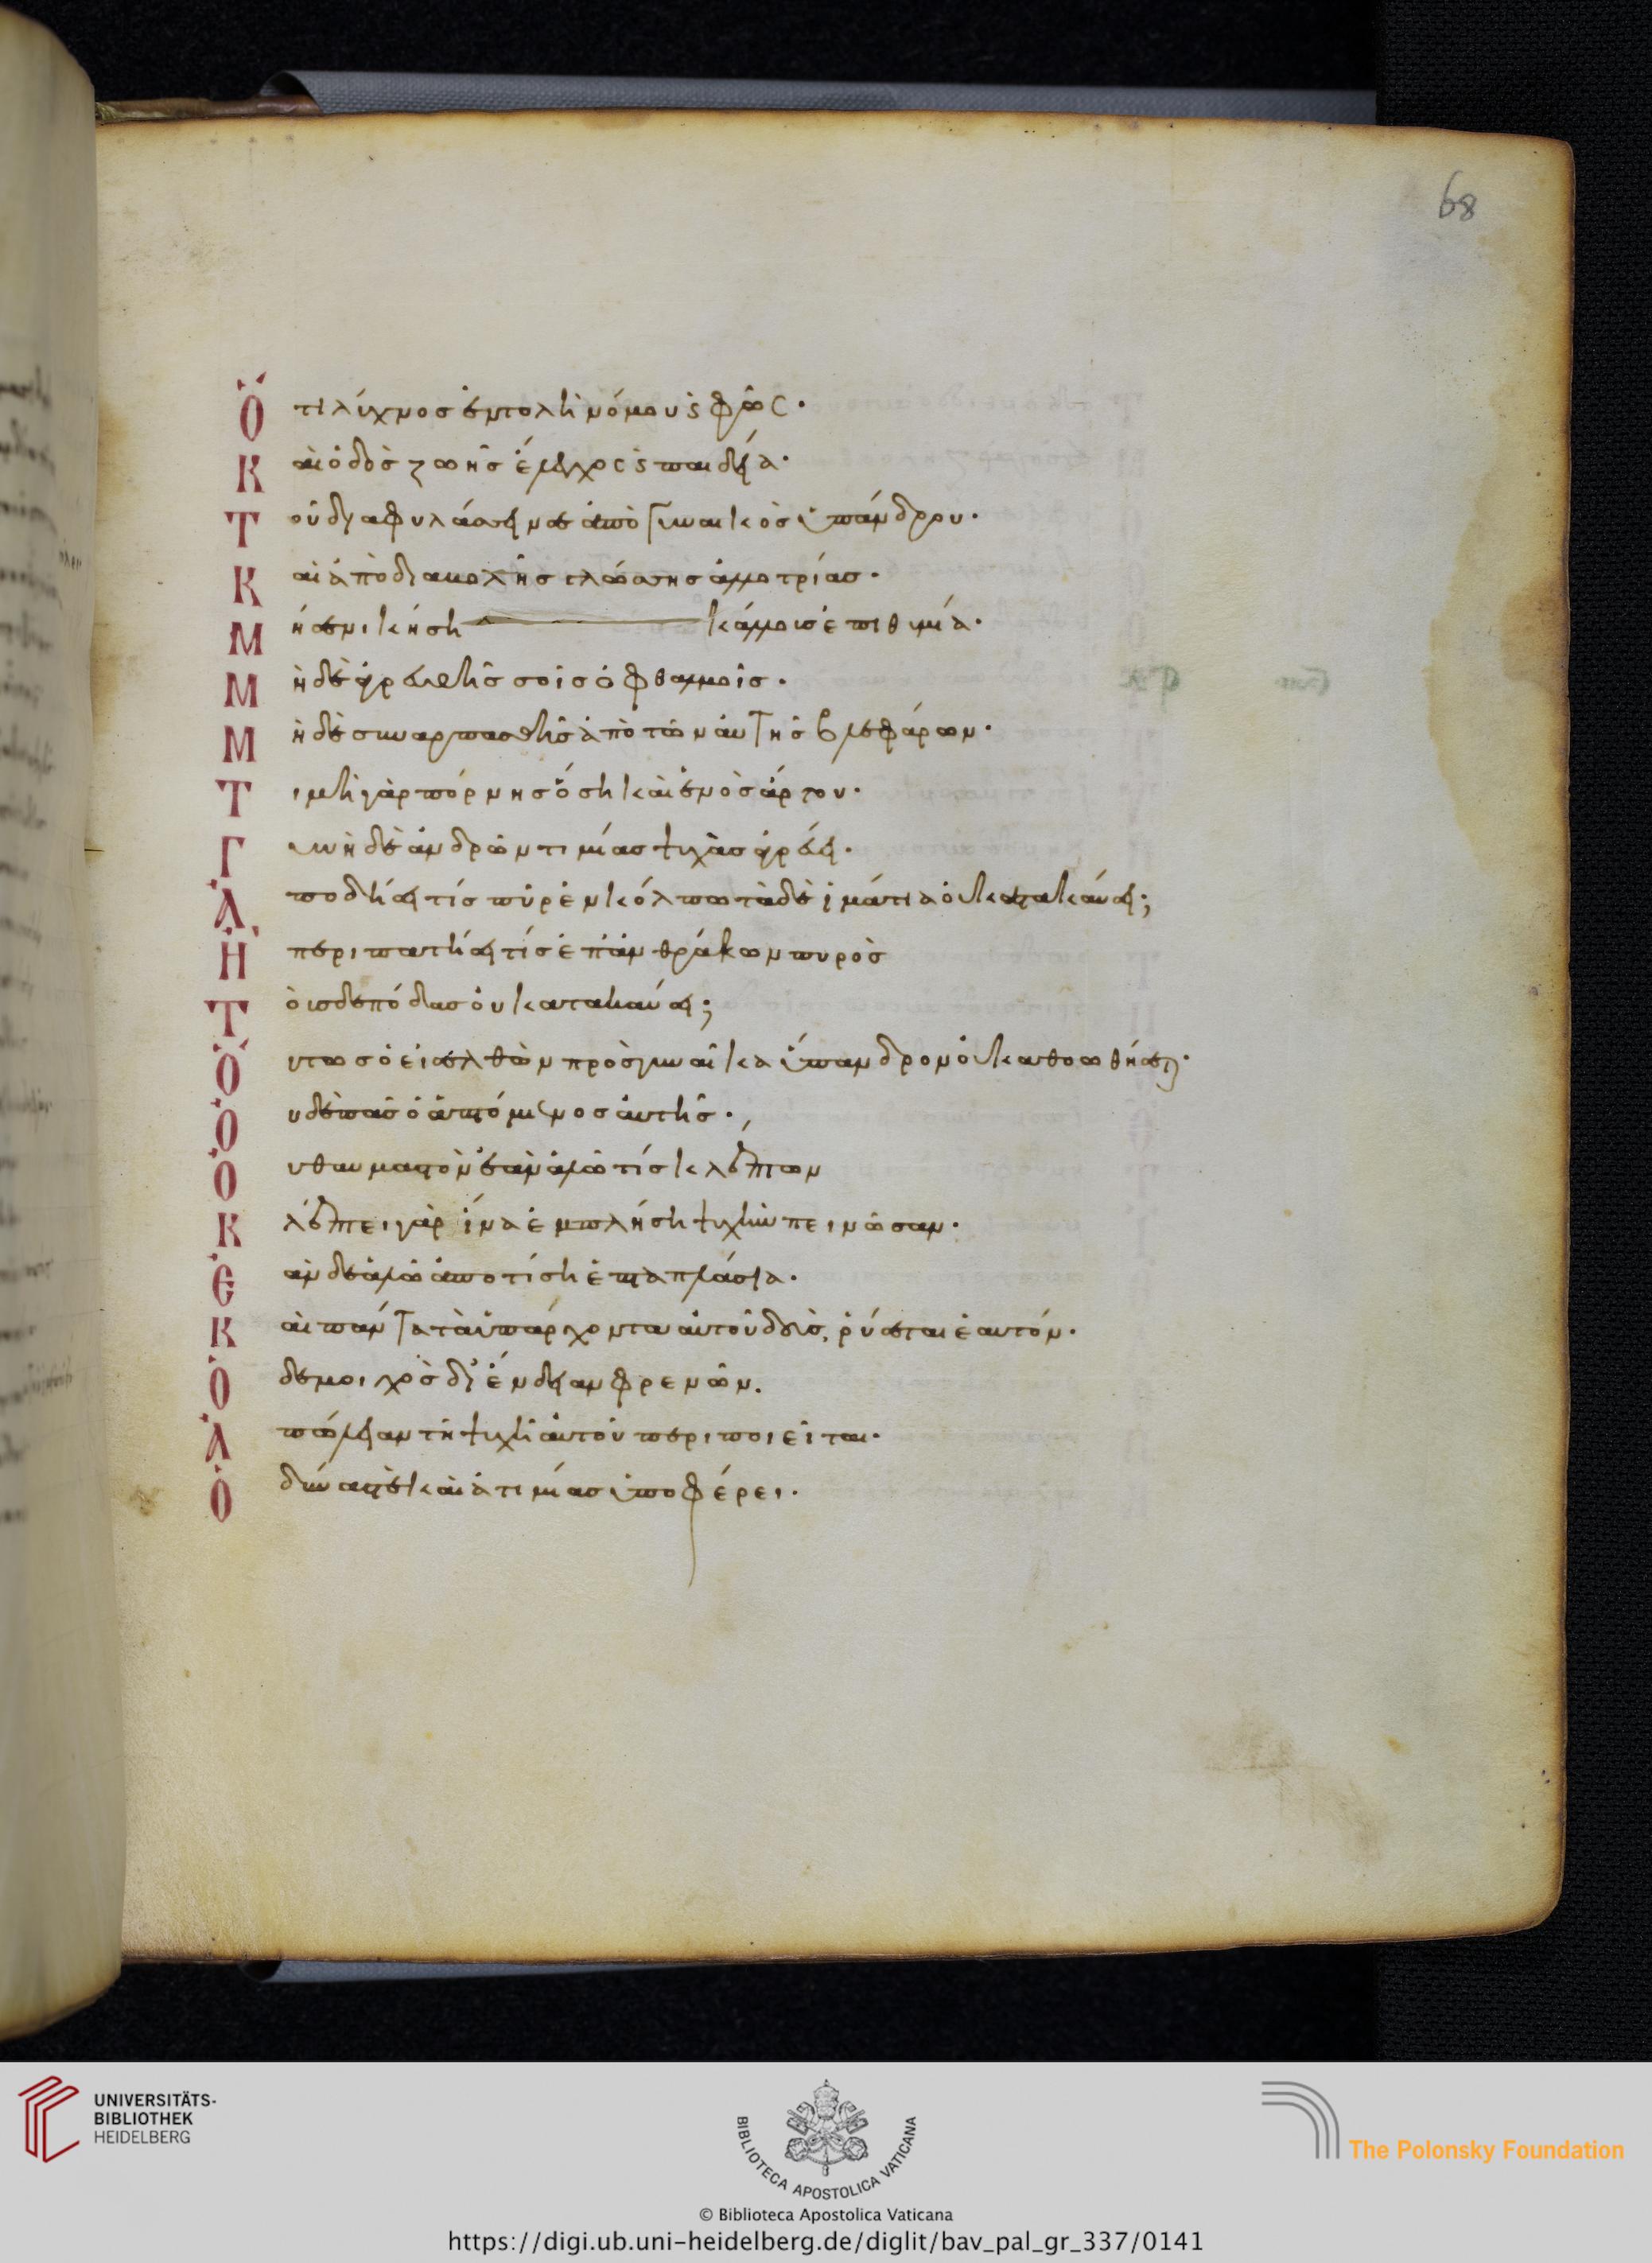 68
Ὅτι λύχνος ἐντολὴ νόμου ϛ φῶς·
Καὶ ὁδὸς ζωῆς ἔλεγχος ϛ παιδεία·
Τοῦ διαφυλάσσειν σε ἀπὸ γυναικὸς ὑπάνδρου·
Καὶ ἀπὸ διαβολῆς γλώσσης ἀλλοτρίας·
Μή σε νικήση κάλλους ἐπιθυμία·
Μηδὲ ἀγρευθῆς σοῖς ὀφθαλμοῖς·
Μηδὲ συναρπασθῆς ἀπὸ τῶν αὐτῆς βλεφάρων·
Τιμὴ γὰρ πόρνης ὅση καὶ ἑνὸς ἄρτου·
Γυνὴ δὲ ἀνδρῶν τιμίας ψυχὰς ἀγρεύει·
Ἀποδήσει τίς πῦρ ἐν κόλπω τὰ δὲ ἱμάτια οὐ κατακαύσει;
Ἢ περιπατήσει τίς ἐπ' ἀνθράκων πυρὸς
Τοὺς δὲ πόδας οὐ κατακαύσει;
Οὕτως ὁ εἰσελθὼν πρὸς γυναῖκα ὕπανδρον οὐκ ἀθοωθήσεται·
Οὐδὲ πᾶς ὁ ἁπτόμενος αὐτῆς·
Οὐ θαυμαστὸν ἐὰν ἁλῶ τίς κλέπτων
Κλέπτει γὰρ ἵνα ἐμπλήση ψυχὴν πεινῶσαν·
Ἐὰν δὲ ἁλῶ ἀποτίση ἑπταπλάσια·
Καὶ πάντα τὰ ὑπάρχοντα αὐτοῦ δοὺς, ῥύσεται ἑαυτόν·
Ὁ δὲ μοιχὸς δι' ἔνδειαν φρενῶν.
Ἀπώλειαν τῆ ψυχῆ αὐτοῦ περιποιεῖται·
Ὀδύνας τὲ καὶ ἀτιμίας ὑποφέρει·
UNIVERSITÄTS-
BIBLIOTHEK
HEIDELBERG
BIBLIOTECA APOSTOLICA VATICANA
The Polonsky Foundation
© Biblioteca Apostolica Vaticana
https://digi.ub.uni-heidelberg.de/diglit/bav_pal_gr_337/0141